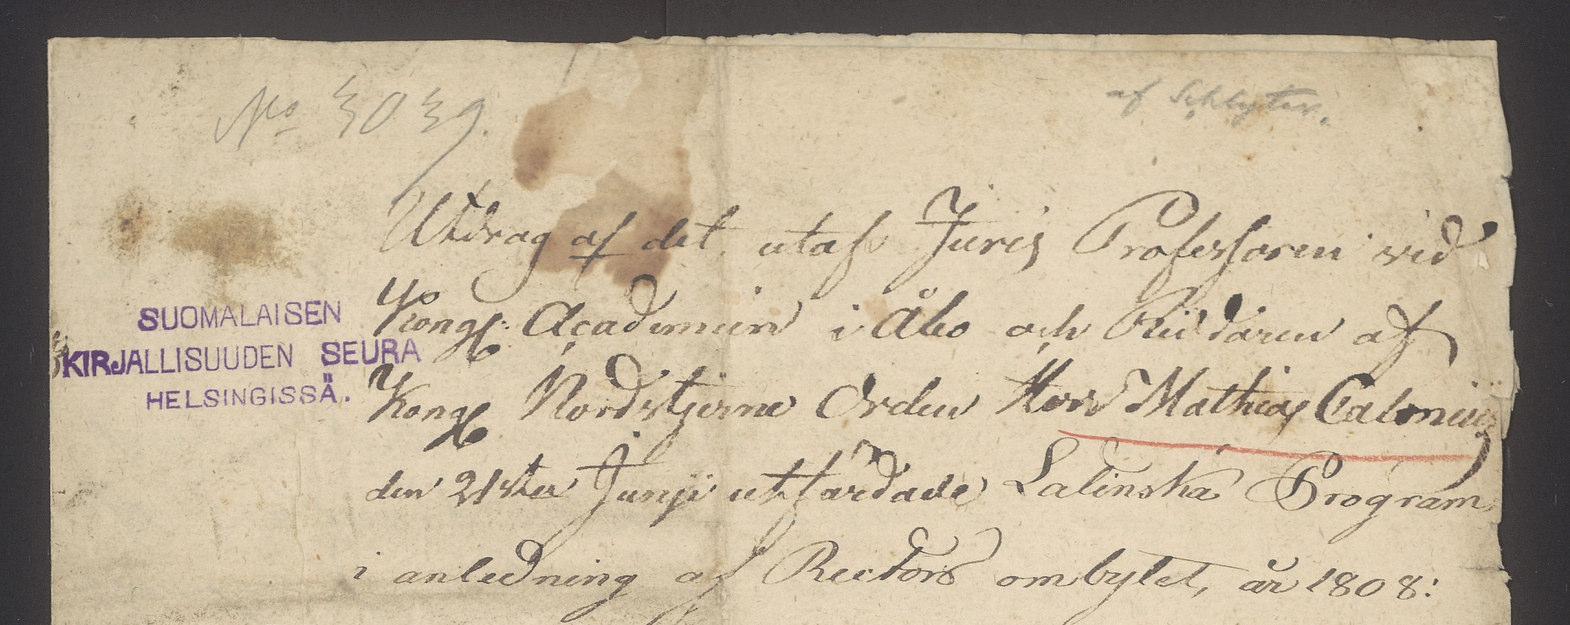 No 3039.
af Schlyter.
Utdrag af det utaf Juris Professoren vid
SUOMALAISEN
KIRJALLISUUDEN SEURA
HELSINGISSÄ.
Kongl: Academien i Åbo och Riddaren af
Kongl Nordstjerne Orden Herr Mathias Calonius
den 21sten Junji utfärdade Latinska Program
i anledning af Rectors ombytet, år 1808: